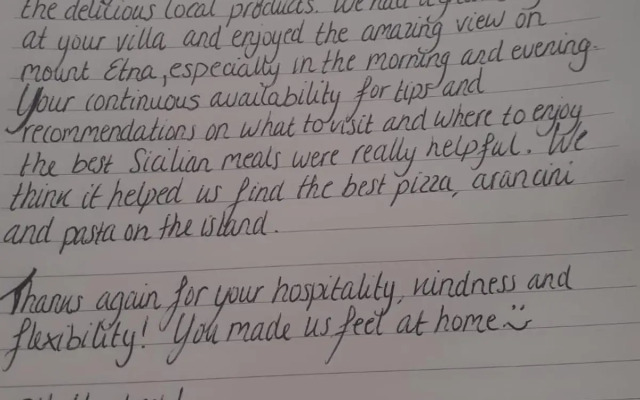 the delicious local products. We had a
at your villa and enjoyed the amazing view on
mount Etna, especially in the morning and evening.
Your continuous availability for tips and
recommendations on what to visit and where to enjoy
the best Sicilian meals were really helpful. We
think it helped us find the best pizza, arancini
and pasta on the island.
Thanks again for your hospitality, kindness and
flexibility! You made us feel at home :)